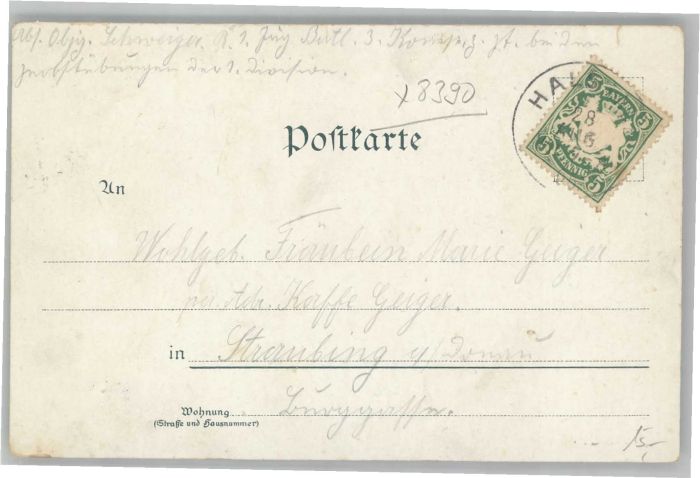 Abs. Objg. Schweiger, K. 1. Jäg. Batl. 3. Komp. z. Zt. bei den
Herbstübungen der 1. Division.
x8390
Postkarte
HAL
28
5 BAYERN 5
5 PFENNIG 5
An
Wohlgeb. Fräulein Marie Geiger
per Adr. Kaffe Geiger.
in Straubing a/Donau
Wohnung Burggasse.
(Straße und Hausnummer)
15-